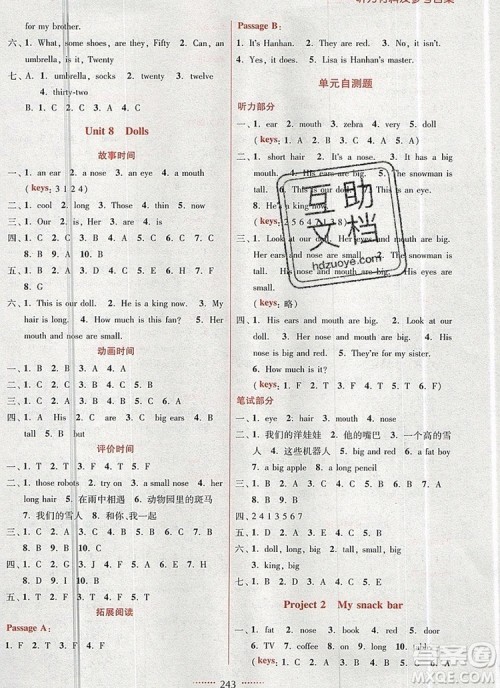 听力材料及参考答案
for my brother.
六、1. What, some shoes, are they, Fifty 2. What's,
an umbrella, is it, Twenty
七、A. 1. umbrella, socks 2. twenty 3. an umbrella
4. thirty-two
B. 1. C 2. C 3. A 4. C
Unit 8 Dolls
故事时间
一、1. an ear 2. a nose 3. an eye 4. a mouth
(keys: 3 1 2 4)
二、1. cool 2. long 3. short 4. big
三、1. Our 2. is 3. Her 4. are 5. big
四、1. C 2. C 3. C 4. A 5. B 6. C 7. C
8. B 9. A 10. B
六、1. This is our doll. 2. He is a king now. 3. My
hair is long. 4. How much is this fan? 5. Her
mouth and nose are small.
动画时间
一、1. BB 2. BA 3. AB 4. BB 5. BA
三、1. C 2. A 3. D 4. C 5. B
四、1. A His 2. are C 3. C big ears 4. C big
5. B are
评价时间
一、1. T 2. T 3. F 4. F 5. T
二、1. those robots 2. try on 3. a small nose 4. her
long hair 5. 在雨中相遇 6. 动物园里的斑马
7. 我们的雪人 8. 和你、我一起
三、1. C 2. B 3. C 4. A 5. A 6. C 7. C
8. B 9. B 10. C
四、1. C 2. A 3. D 4. B
五、1. T 2. T 3. F 4. F 5. T
拓展阅读
Passage A:
1. F 2. F 3. T 4. T 5. F
Passage B:
1. It's Hanhan. 2. They are big. 3. No, it isn't.
4. Yes, it does. 5. Lisa is Hanhan's master.
单元自测题
听力部分
一、1. ear 2. mouth 3. zebra 4. very 5. doll
(keys: C A B C C)
二、1. short hair 2. It's a nose. 3. It has a big
mouth. 4.
8. He's a king now.
(keys: 2 5 6 4 7 1 3 8)
三、1. Look at our doll. Her eyes are big. 2. His
ears and mouth are big. Her
nose is small. His
nose and mouth are big. His eyes
are small.
(keys: 略)
四、1. His ears and mouth are big. 2. Look at our
doll. 3. Her mouth and eyes are big. 4. His
nose is big and long. 5. They're for my sister.
6. How much is it?
(keys: B A B A A B)
笔试部分
一、1. eye 2. hair 3. mouth 4. ear 5. nose
二、1. 我们的洋娃娃 2. 他的嘴巴 3. 一个高的雪
人 4. 这些机器人 5. try on 6. a small nose
7. read a book 8. a long pencil
三、1. B 2. C 3. B 4. C 5. A 6. A 7. A
8. B
四、2 4 1 3 5 6 7
五、1. F 2. T 3. T 4. F 5. F
六、1. doll, long, big 2. tall, big 3. king, small, big
4. king, big
七、1. T 2. T 3. F 4. F 5. F
Project 2 My snack bar
一、1. fat 2. nose 3. doll 4. book 5. toilet
6. about 7. boat 8. room 9. 10. table
(keys:
互助文档
hdzuoye.com
答案圈
MXQE.COM
243